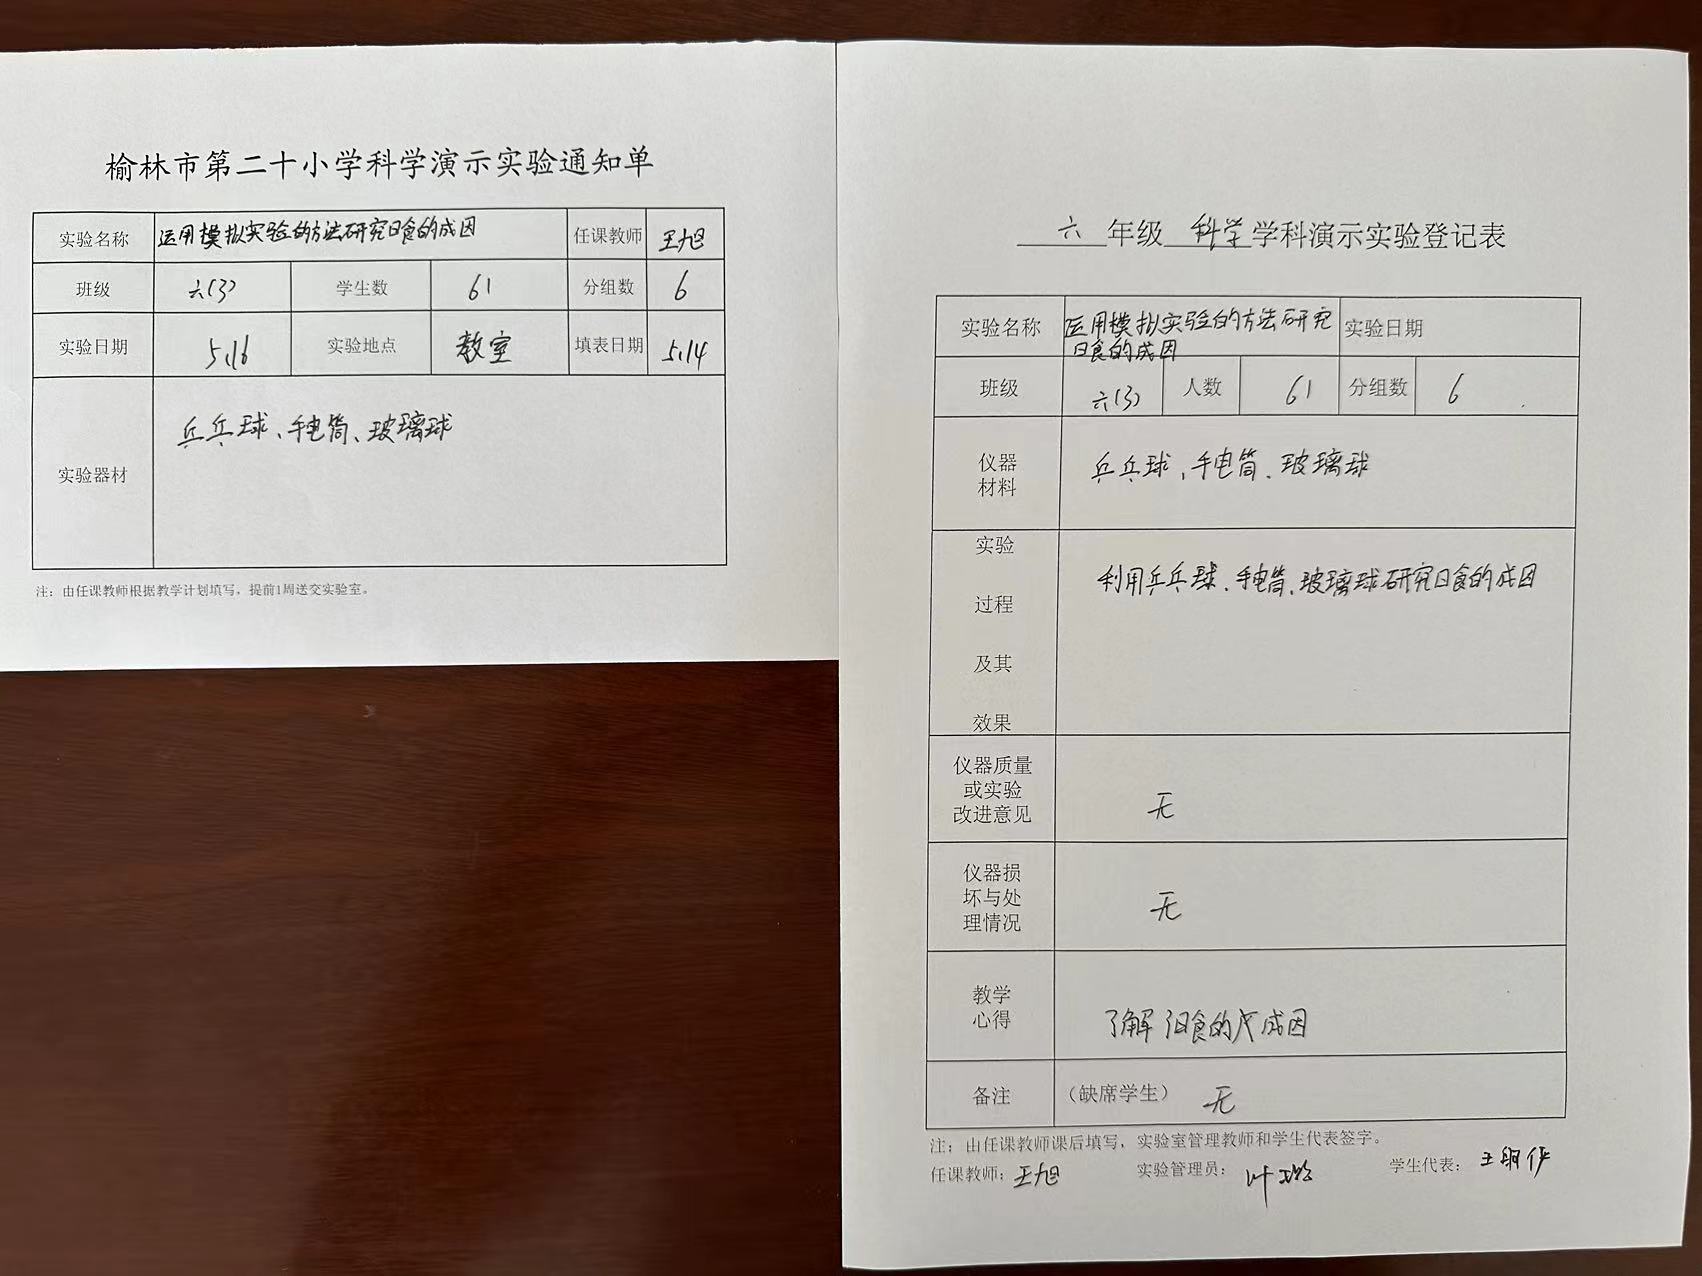 榆林市第二十小学科学演示实验通知单
实验名称 运用模拟实验的方法研究日食的成因 任课教师 王旭
班级 六(3) 学生数 61 分组数 6
实验日期 5.16 实验地点 教室 填表日期 5.14
实验器材 乒乓球、手电筒、玻璃球
注：由任课教师根据教学计划填写，提前1周送交实验室。
六年级 科学学科演示实验登记表
实验名称 运用模拟实验的方法研究 实验日期
日食的成因
班级 六(3) 人数 61 分组数 6
仪器
材料
乒乓球、手电筒、玻璃球
实验
过程
及其
效果
利用乒乓球、手电筒、玻璃球研究日食的成因
仪器质量
或实验
改进意见
无
仪器损
坏与处
理情况
无
教学
心得
了解日食的成因
备注 （缺席学生） 无
注：由任课教师课后填写，实验室管理教师和学生代表签字。
任课教师：王旭 实验管理员：叶 学生代表：王